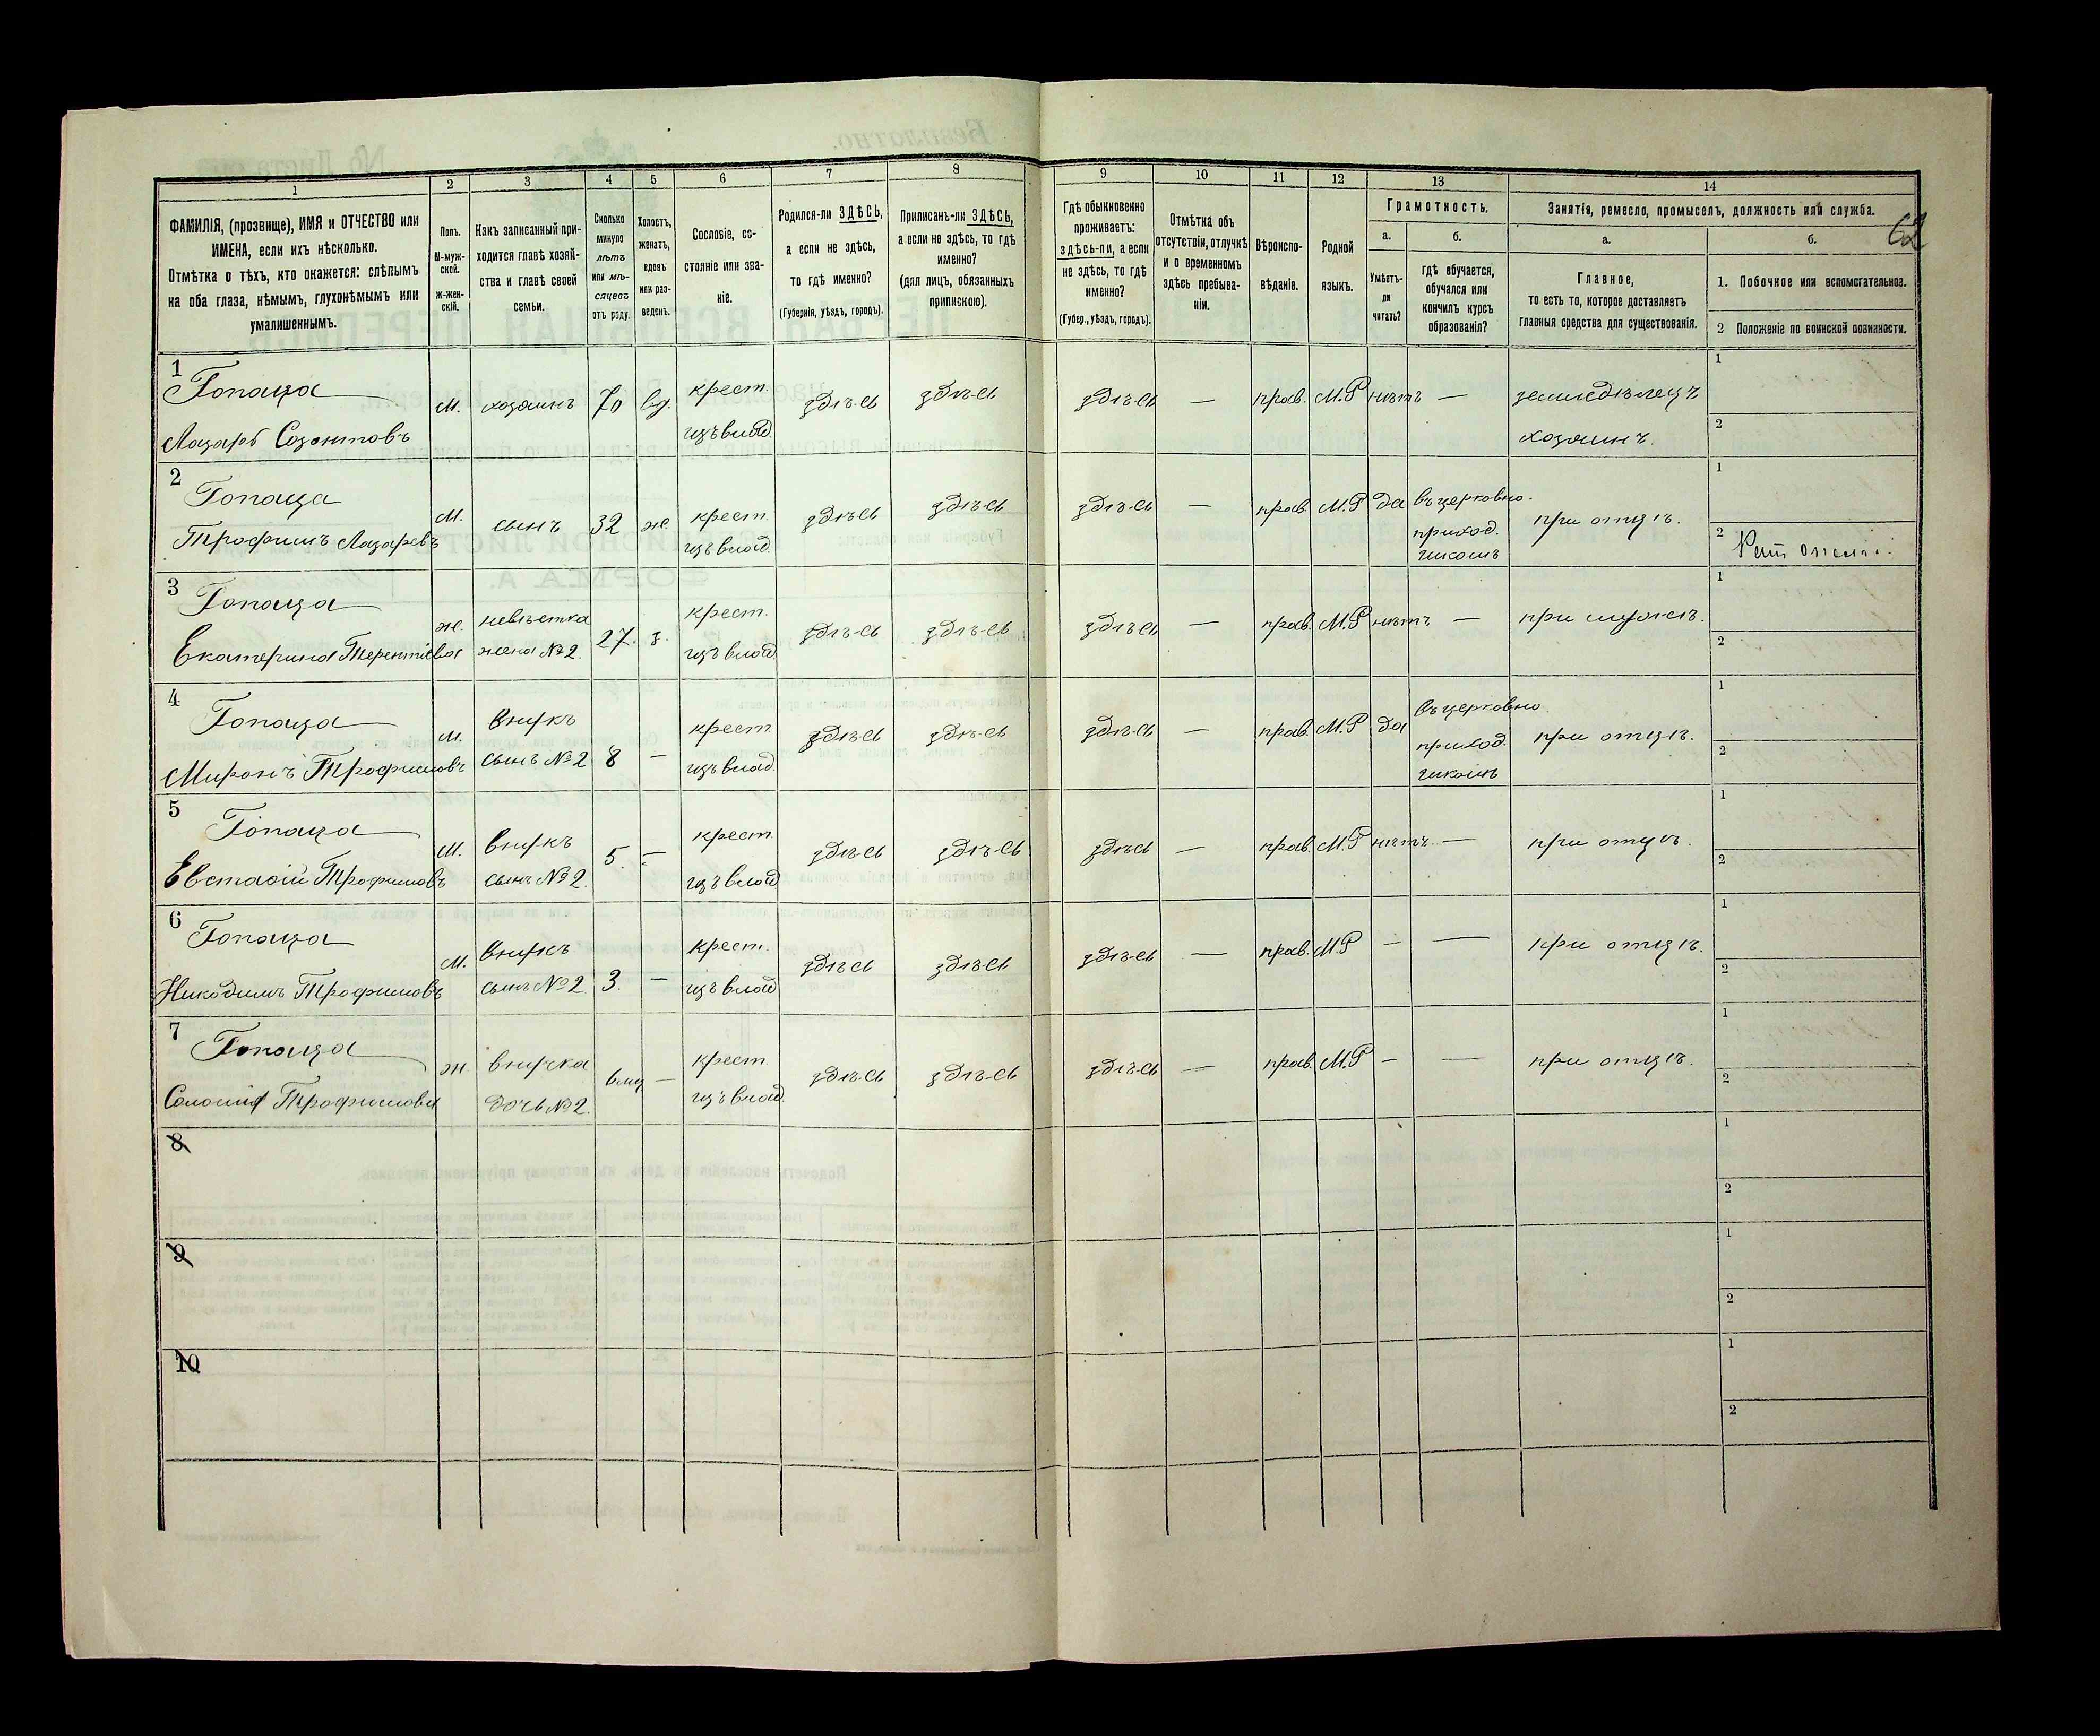 62
1 2 3 4 5 6 7 8 9 10 11 12 13 14
ФАМИЛІЯ, (прозвище), ИМЯ и ОТЧЕСТВО или
ИМЕНА, если ихъ нѣсколько.
Отмѣтка о тѣхъ, кто окажется: слѣпымъ
на оба глаза, нѣмымъ, глухонѣмымъ или
умалишеннымъ.
Полъ.
М-муж-
ской.
Ж-жен-
скій.
Какъ записанный при-
ходится главѣ хозяй-
ства и главѣ своей
семьи.
Сколько
минуло
лѣтъ
или мѣ-
сяцевъ
отъ роду.
Холостъ,
женатъ,
вдовъ
или раз-
веденъ.
Сословіе, со-
стояніе или зва-
ніе.
Родился-ли ЗДѢСЬ,
а если не здѣсь,
то гдѣ именно?
(Губернія, уѣздъ, городъ).
Приписанъ-ли ЗДѢСЬ,
а если не здѣсь, то гдѣ
именно?
(для лицъ, обязанныхъ
припискою).
Гдѣ обыкновенно
проживаетъ:
здѣсь-ли, а если
не здѣсь, то гдѣ
именно?
(Губер., уѣздъ, городъ).
Отмѣтка объ
отсутствіи, отлучкѣ
и о временномъ
здѣсь пребыва-
ніи.
Вѣроиспо-
вѣданіе.
Родной
языкъ.
Грамотность.
а.
Умѣетъ-
ли
читать?
б.
гдѣ обучается,
обучался или
кончилъ курсъ
образованія?
Занятіе, ремесло, промыселъ, должность или служба.
а.
Главное,
то есть то, которое доставляетъ
главныя средства для существованія.
б.
1. Побочное или вспомогательное.
2 Положеніе по воинской повинности.
1 Гопаца
Лазарь Созонтовъ
м. хозяинъ 70 вд. крест.
изъ влад.
здѣсь здѣсь здѣсь — прав. М.Р нѣтъ — земледѣлецъ
хозяинъ.
1
2
2 Гопаца
Трофимъ Лазаревъ
м. сынъ 32 ж. крест.
изъ влад.
здѣсь здѣсь здѣсь — прав. М.Р да въ церковно-
приход.
школѣ
при отцѣ.
1
2
3 Гопаца
Екатерина Терентіева
ж. невѣстка
жена №2.
27. з. крест.
изъ влад.
здѣсь здѣсь здѣсь — прав. М.Р нѣтъ — при мужѣ.
1
2
4 Гопаца
Миронъ Трофимовъ
м. внукъ
сынъ №2
8 — крест.
изъ влад.
здѣсь здѣсь здѣсь — прав. М.Р да въ церковно
приход.
школѣ
при отцѣ.
1
2
5 Гопаца
Евстафій Трофимовъ
м. внукъ
сынъ №2.
5. — крест.
изъ влад
здѣсь здѣсь здѣсь — прав. М.Р нѣтъ. — при отцѣ.
1
2
6 Гопаца
Никодимъ Трофимовъ
м. внукъ
сынъ №2.
3. — крест.
изъ влад
здѣсь здѣсь здѣсь — прав. М.Р — — при отцѣ.
1
2
7 Гопаца
Соломія Трофимова
ж внучка
дочь №2.
— крест.
изъ влад.
здѣсь здѣсь здѣсь — прав. М.Р — — при отцѣ.
1
2
8
1
2
9
1
2
10
1
2